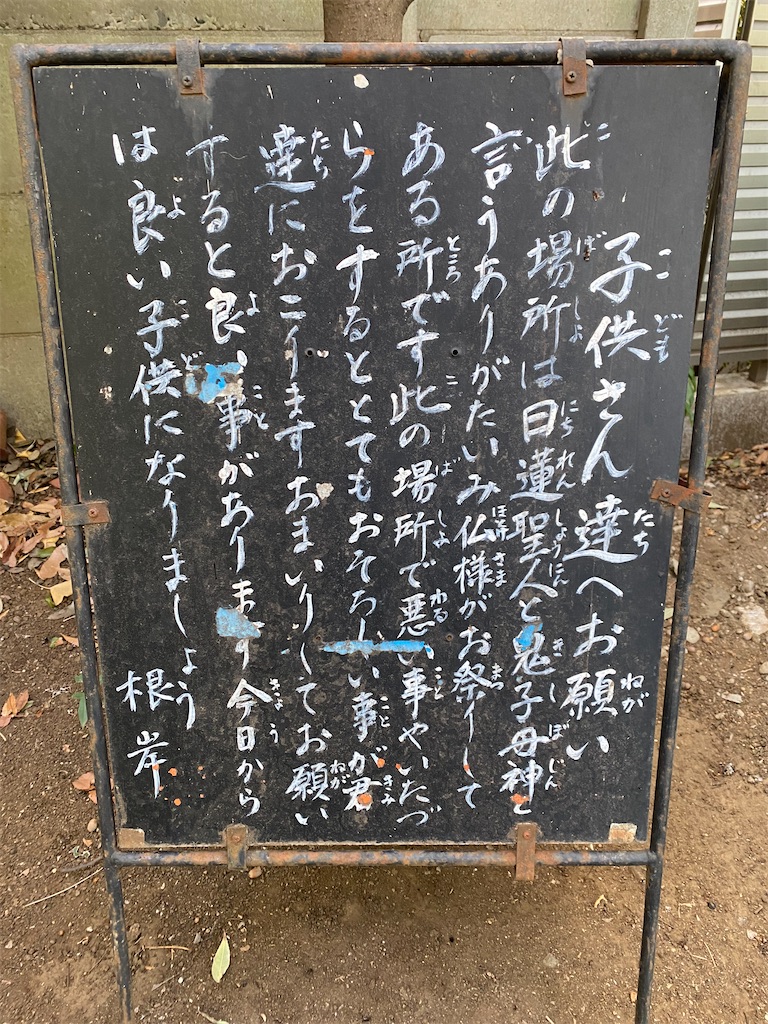 子供さん達へお願い
此の場所は日蓮聖人と鬼子母神と
言うありがたいみ仏様がお祭りして
ある所です此の場所で悪い事やいたづ
らをするととてもおそろしい事が君
達におこりますおまいりしてお願い
すると良い事があります今日から
は良い子供になりましょう
根岸